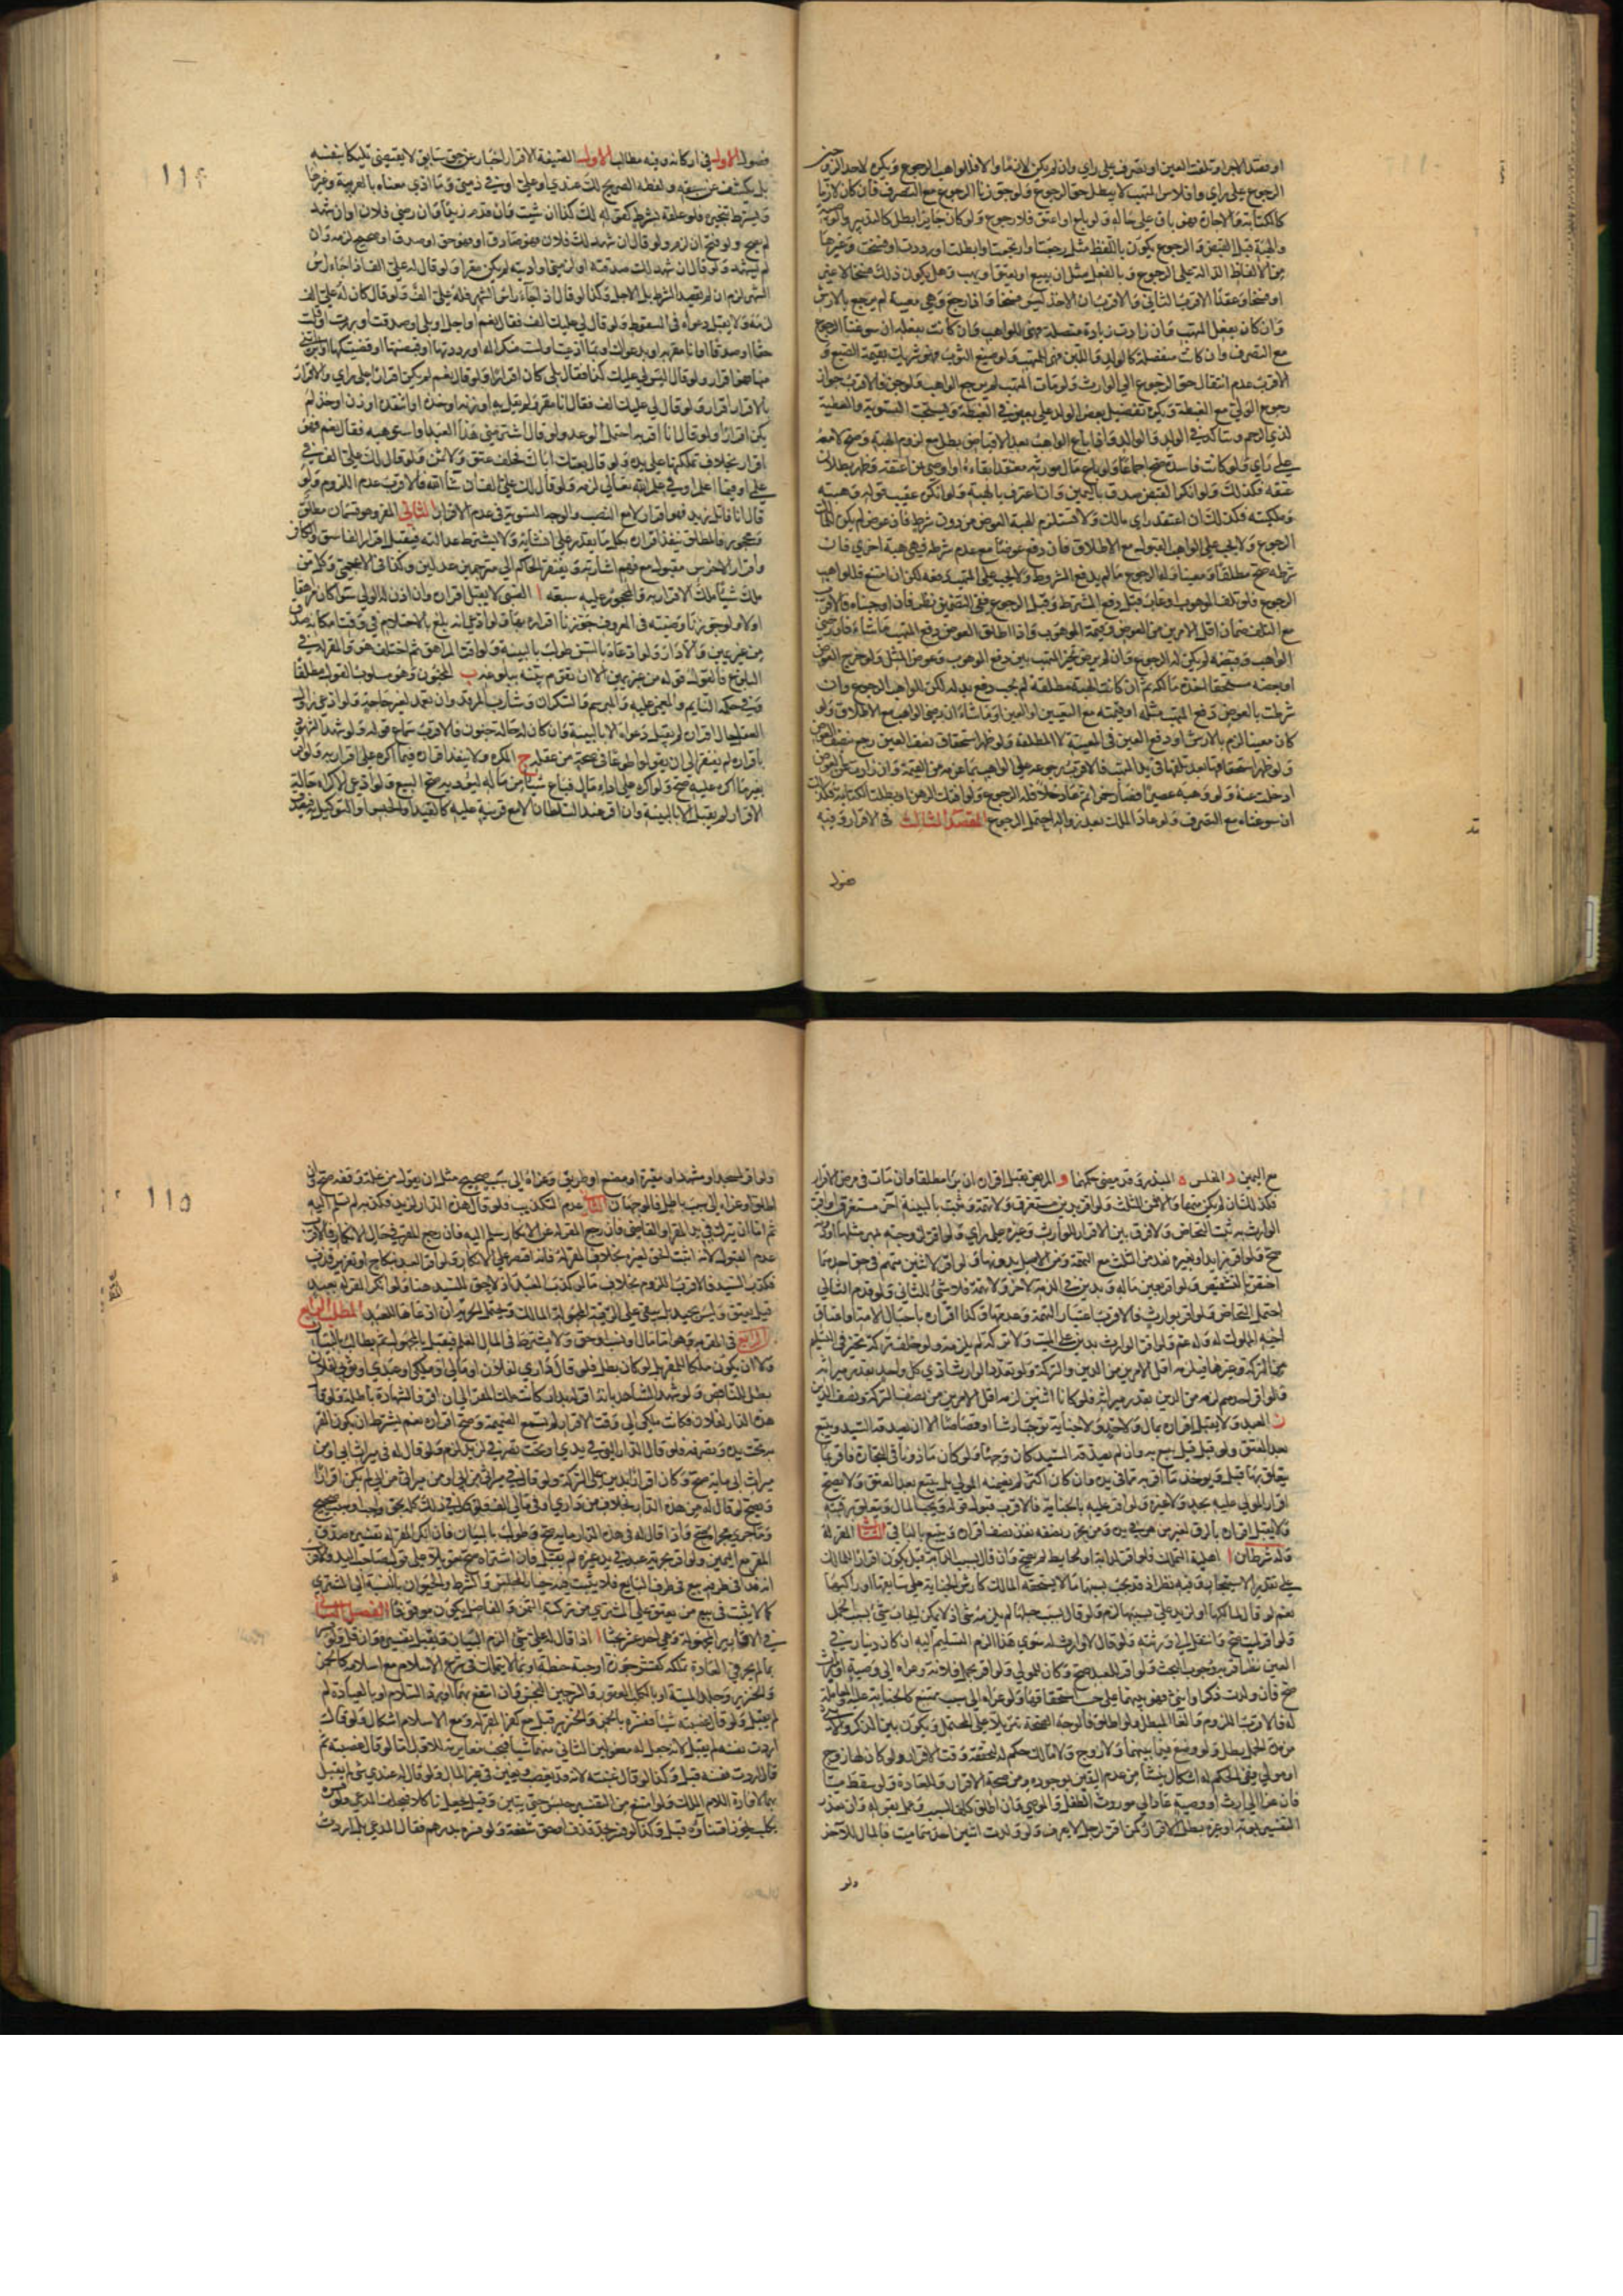 او فقد الاجر او تلفت العين او تصرف على راي وان لم يكن لازما والا فللواهب الرجوع ويكره لاحد الزوجين
الرجوع على راي وافلاس المتهب لا يبطل حق الرجوع ولو جوزنا الرجوع مع التصرف فان كان لازما
كالكتابة والاجارة فهو باق على حاله ولو باع او اعتق فلا رجوع ولو كان جايزا بطل كالتدبير والوصية
والهبة قبل القبض والرجوع يكون باللفظ مثل رجعت وارتجعت وابطلت او رددت او فسخت وغيرها
من الالفاظ الدالة على الرجوع وبالفعل مثل ان يبيع او يعتق او يهب وهل يكون ذلك فسخا لا غير
او فسخا وعقدا الاقرب الثاني والاقرب ان الاخذ ليس فسخا واذا رجع وهي معيبة لم يرجع بالارش
وان كان بفعل المتهب وان زادت زيادة متصلة فهي للواهب وان كانت بفعله ان سوغنا الرجوع
مع التصرف وان كانت منفصلة كالولد واللبن فهي للمتهب ولو صبغ الثوب فهو شريك بقيمة الصبغ و
الاقرب عدم انتقال حق الرجوع الى الوارث ولو مات المتهب لم يرجع الواهب ولو جن فالاقرب جواز
رجوع الولي مع الغبطة ويكره تفضيل بعض الولد على بعض في العطية ويستحب التسوية والعطية
لذي الرحم ويتاكد في الولد والوالد واذا باع الواهب بعد الاقباض بطل مع لزوم الهبة وصح لا معه
على راي ولو كانت فاسدة صح اجماعا ولو باع مال مورثه معتقدا بقاءه او اوصى بمن اعتقه وظهر بطلان
عتقه فكذلك ولو انكر القبض صدق باليمين وان اعترف بالهبة ولو انكره عقيب قوله وهبته
وملكته فكذلك ان اعتقد راي مالك ولا تستلزم الهبة العوض من دون شرطه فان عوض لم يكن للمالك
الرجوع ولا يجب على الواهب القبول مع الاطلاق فان دفع عوضا مع عدم شرطه فهي هبة اخرى فان
شرطه صح مطلقا ومعينا وله الرجوع ما لم يدفع المشروط ولا يجب على المتهب دفعه لكن ان امتنع فللواهب
الرجوع فلو تلف الموهوب او عاب قبل دفع المشترط وقبل الرجوع ففي التضمين نظر فان اوجبناه فالاقرب
مع التلف ضمان اقل الامرين من العوض وقيمة الموهوب واذا اطلق العوض دفع المتهب ما شاء فان رضي
الواهب وقبضه لم يكن له الرجوع وان لم يرض تخير المتهب بين دفع الموهوب وعوض المثل ولو خرج العوض
او بعضه مستحقا اخذه مالكه ثم ان كانت الهبة مطلقة لم يجب دفع بدله لكن للواهب الرجوع وان
شرطت بالعوض دفع المتهب مثله او قيمته مع التعيين او العين او ما شاء ان رضي الواهب مع الاطلاق ولو
كان معيبا لزم بالارش او دفع العين في المعينة لا المطلقة ولو ظهر استحقاق نصف العين رجع بنصف العوض
ولو ظهر استحقاقها بعد تلفها في يد المتهب فالاقرب رجوعه على الواهب بما غرمه من القيمة وان زاد عن العوض
او خلت عنه ولو وهبه عصيرا فصار خمرا ثم عاد خلا فله الرجوع ولو افتك الرهن او بطلت الكتابة فكذلك
ان سوغناه مع التصرف ولو عاد الملك بعد زواله احتمل الرجوع المقصد الثالث في الاقرار وفيه
فصول
١١٤
فصول الاول في اركانه وفيه مطالب الاول الصيغة الاقرار اخبار عن حق سابق لا يقتضي تمليكا بنفسه
بل يكشف عن سبقه ولفظه الصريح لك عندي او علي او في ذمتي وما ادى معناه بالعربية وغيرها
ويشترط تنجيزه فلو علقه بشرط كقوله لك كذا ان شيت وان قدم زيد او ان رضي فلان او ان شهد
لم يصح ولو فتح ان لزم ولو قال ان شهد لك فلان فهو صادق او فهو حق او صدق او صحيح لزمه وان
لم يشهد ولو قال ان شهد لك صدقته او لزمني او اديته لم يكن مقرا ولو قال له علي الف اذا جاء راس
الشهر لزم ان لم يقصد الشرط بل الاجل وكذا لو قال اذا جاء راس الشهر فله علي الف ولو قال كان له علي الف
لزمه ولا يقبل دعواه في السقوط ولو قال لي عليك الف فقال نعم او اجل او بلى او صدقت او بررت او قلت
حقا او صدقا او انا مقر به او بدعواك او بما ادعيت او لست منكرا له او رددتها او قبضتها او قضيتكها او ابراتني
منها فهو اقرار ولو قال اليس لي عليك كذا فقال بلى كان اقرارا ولو قال نعم لم يكن اقرارا على راي والاقرار
بالاقرار اقرار ولو قال لي عليك الف فقال انا مقر ولم يقل به او زنه او خذه او انتقده او زن او خذ لم
يكن اقرارا ولو قال انا اقر به احتمل الوعد ولو قال اشتر مني هذا العبد او استوهبه فقال نعم فهو
اقرار بخلاف تملكتها على يده ولو قال بعتك اباك فحلف عتق ولا ثمن ولو قال لك علي الف في
علمي او فيما اعلم او في علم الله تعالى لزمه ولو قال لك علي الف ان شاء الله فالاقرب عدم اللزوم ولو
قال انا قاتل زيد فهو اقرار لا مع النصب والوجه التسوية في عدم الاقرار الثاني المقر وهو قسمان مطلق
ومحجور فالمطلق ينفذ اقراره بكل ما يقدر على انشائه ولا يشترط عدالته فيقبل اقرار الفاسق والكافر
واقرار الاخرس مقبول مع فهم اشارته ويفتقر الحاكم الى مترجمين عدلين وكذا في الاعجمي وكل من
ملك شيئا ملك الاقرار به والمحجور عليه سبعة ا الصبي لا يقبل اقراره وان اذن له الولي سوا كان مراهقا
اولا ولو جوزنا وصيته في المعروف جوزنا اقراره بها ولو ادعى انه بلغ بالاحتلام في وقت امكانه صدق
من غير يمين والا دار ولو ادعاه بالسن طولب بالبينة ولو اقر المراهق ثم اختلف هو والمقر له في
البلوغ فالقول قوله من غير يمين الا ان تقوم بينة ببلوغه ب المجنون وهو مسلوب القول مطلقا
وفي حكمه النايم والمغمى عليه والمبرسم والسكران وشارب المرقد وان تعمد لغير حاجة ولو ادعى زوال
العقل حال اقراره لم يقبل دعواه الا بالبينة وان كان له حالة جنون فالاقرب سماع قوله ولو شهد الشهود
باقراره لم يفتقر الى ان يقولوا طوعا في صحة من عقله ج المكره ولا ينفذ اقراره فيما اكره على اقراره به ولو اقر
بغير ما اكره عليه صح ولو اكره على اداء مال فباع شيئا من ماله ليؤديه صح البيع ولو ادعى الاكراه حالة
الاقرار لم يقبل الا بالبينة وان اقر عند السلطان الا مع قرينة عليه كالقيد والحبس او التوكيل فيصدق
مع اليمين د المفلس ه المبذر وقد مضى حكمهما و المريض يقبل اقراره ان برئ مطلقا وان مات في مرض الاقرار
فكذلك ان لم يكن متهما والا فمن الثلث ولو اقر بدين مستغرق ولا تهمة وثبت بالبينة اخر مستغرق او اقر
الوارث به ثبت التحاص ولا فرق بين الاقرار للوارث وغيره على راي ولو اقر لزوجته بمهر مثلها او دونه
صح ولو اقر بزايد او بغيره نفذ من الثلث مع التهمة ومن الاصل بدونها ولو اقر لاثنين متهم في حق احدهما
اختص بالتنقيص ولو اقر بعين ماله وبدين في الذمة لاخر ولا تهمة فلا شيء للثاني ولو قدم الثاني
احتمل التحاص ولو اقر بوارث فالاقرب اعتبار التهمة وعدمها وكذا اقراره باحبال الامة او اعتاق
اخيه المملوك له وله عم ولو اقر الوارث بدين على الميت ولا تركة لم يلزمه ولو خلف تركة تخير في التسليم
من التركة وغيرها فيلزمه اقل الامرين من الدين والتركة ولو تعدد الوارث ادى كل واحد بقدر ميراثه
ولو اقر احدهم لزمه من الدين بقدر ميراثه فلو كانا اثنين لزمه اقل الامرين من نصف التركة ونصف الدين
ز العبد ولا يقبل اقراره بمال ولا حد ولا جناية توجب ارشا او قصاصا الا ان يصدقه السيد ويتبع
بعد العتق ولو قيل يقبل ويتبع به وان لم يصدقه السيد كان وجها ولو كان ماذونا في التجارة فاقر بما
يتعلق بها قبل ويوخذ ما اقر به مما في يده وان كان اكثر لم يضمنه المولى بل يتبع بعد العتق ولا يصح
اقرار المولى عليه بحد ولا غيره ولو اقر عليه بالجناية فالاقرب قبول قوله ويجب المال ويتعلق برقبته
ولا يقبل اقراره بالرق لغير من هو في يده ومن تحرر نصفه نفذ نصف اقراره ويتبع بالباقي الثالث المقر له
وله شرطان ا اهلية التملك فلو اقر لدابة او لحايط لم يصح وان قال بسبب الدابة قيل يكون اقرارا للمالك
على تقدير الاستيجار وفيه نظر اذ قد يجب بسببها ما لا يستحقه المالك كارش الجناية على سايقها او راكبها
نعم لو قال لمالكها او لزيد علي بسببها لزم ولو قال بسبب حملها لم يلزمه شيء اذ لا يمكن ايجاب شيء بسبب الحمل
ولو اقر لميت صح وانتقل الى ورثته ولو قال لا وارث له سوى هذا الزم التسليم اليه ان كان دينا وفي
العين نظر اقربه وجوب البحث ولو اقر للعبد صح وكان للمولى ولو اقر بحمل فلانة وعزاه الى وصية او ميراث
صح فان ولدت ذكرا وانثى فهو بينهما على حسب استحقاقهما ولو عزاه الى سبب ممتنع كالجناية عليه والمعاملة
له فالاقرب اللزوم والغاء المبطل ولو اطلق فالوجه الصحة تنزيلا على المحتمل ويكون بين الذكر والانثى
فان عزاه الى ارث او وصية عاد الى مورث الطفل والموصي وان اطلق كلف السبب وعمل بقوله وان تعذر
التفسير بموته او غيره بطل الاقرار كمن اقر لرجل لا يعرف ولو ولدت اثنين احدهما ميت فالمال للاخر
ولو
١١٥
ولو اقر لمسجد او مشهد او مقبرة او مصنع او طريق وعزاه الى سبب صحيح مثل ان يقول من غلة وقفه صح وان
اطلق او عزاه الى سبب باطل فالوجهان الثاني عدم التكذيب فلو قال هذه الدار لزيد فكذبه لم تسلم اليه
ثم اما ان يترك في يد المقر او القاضي فان رجع المقر له عن الانكار سلم اليه فان رجع المقر في حال الانكار فالاقرب
عدم القبول لانه اثبت الحق لغيره بخلاف المقر له فانه اقتصر على الانكار ولو اقر لعبد بنكاح او تعزير قذف
فكذب السيد فالاقرب اللزوم بخلاف ما لو كذب العبد اذ لا حق للسيد هنا ولو انكر المقر له بعبد
قيل يعتق وليس بجيد بل يبقى على الرقية المجهولة المالك ويحتمل الحرية ان ادعاها العبد المطلب الرابع
في المقر به وهو اما مال او نسب او حق ولا يشترط في المال العلم فيقبل بالمجهول ثم يطالب بالبيان
ولا ان يكون ملكا للمقر بل لو كان بطل فلو قال داري لفلان او مالي او ملكي او عبدي او ثوبي لفلان
بطل للتناقض ولو شهد الشاهد بانه اقر له بدار كانت ملك المقر الى ان اقر فالشهادة باطلة ولو قال
هذه الدار لفلان وكانت ملكي الى وقت الاقرار لم تسمع الضميمة وصح اقراره نعم يشترط ان يكون المقر
به تحت يده وتصرفه فلو قال الدار التي في يدي او تحت تصرفي لزيد لزم ولو قال له في ميراث ابي او من
ميراث ابي مائة صح وكان اقرارا بدين على التركة ولو قال في ميراثي من ابي او من ميراثي من ابي لم يكن اقرارا
ويصح لو قال له من هذه الدار بخلاف من داري او في مالي الف ولو قال في ذلك كله بحق واجب او بسبب صحيح
وما جرى مجراه صح واذا قال له في هذه الدار مايه صح وطولب بالبيان فان انكر المقر له تفسيره صدق
المقر مع اليمين ولو اقر بحرية عبد في يد غيره لم يقبل فان اشتراه صح تعويلا على قول صاحب اليد والاقرب
انه فداء في طرفه بيع في طرف البايع فلا يثبت فيه خيار المجلس والشرط والحيوان بالنسبة الى المشتري
كما لا يثبت في بيع من يعتق على المشتري من تركته الثمن والفاضل يكون موقوفا الفصل الثاني
في الاقارير المجهولة وهي احد عشر بحثا ا اذا قال له علي شيء الزم البيان ويقبل تفسيره وان قل ولو فسر
بما لم يجر في العادة تملكه كقشر جوزة او حبة حنطة او بما لا يملك في شرع الاسلام مع اسلامه كالخمر
والخنزير وجلد الميتة او بالكلب العقور والسرجين النجس وان انتفع بهما او برد السلام او بالعيادة لم
يقبل ولو قال غصبته شيئا وفسره بالخمر والخنزير قبل مع كفر المقر له ومع الاسلام اشكال ولو قال
اردت نفسه لم يقبل لانه جعل له مفعولين الثاني منهما شيئا فيجب مغايرته للاول اما لو قال غصبته ثم
قال اردت نفسه قبل وكذا لو قال غبنته لانه قد يغصب ويغبن في غير المال ولو قال له عندي شيء لم يقبل
بهما لافادة اللام الملك ولو امتنع من التفسير حبس حتى يبين وقيل يجعل ناكلا فيحلف المدعي ولو فسره
بكلب يجوز اقتناؤه قبل وكذا لو فسر بحد قذف او حق شفعة ولو فسره بدرهم فقال المدعي بل اردت